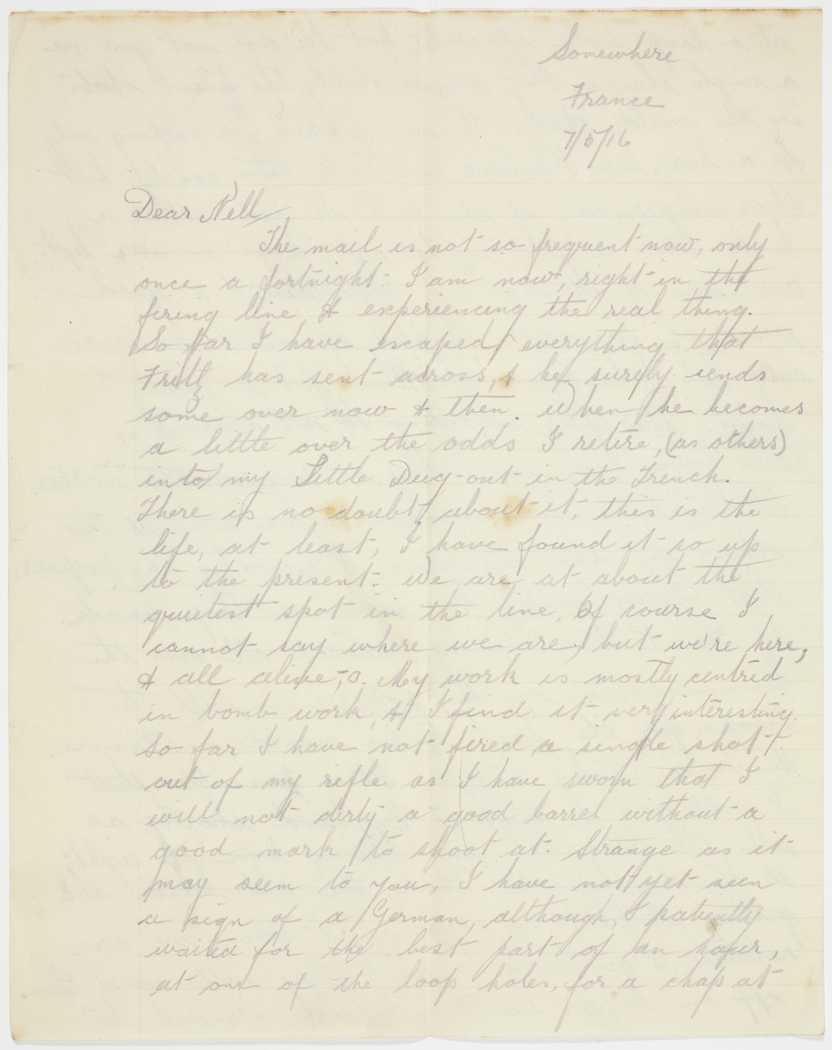 Somewhere
France
7/5/16
Dear Nell
The mail is not so frequent now, only
once a fortnight. I am now, right in the
firing line, & experiencing the real thing.
So far I have escaped everything that
Fritz has sent across, & he surely sends
some over now & then. When he becomes
a little over the odds I retire, (as others)
into my Little Dug-out in the Trench.
There is no doubt about it, this is the
life, at least, I have found it so up
to the present. We are at about the
quietest spot in the line. Of course I
cannot say where we are, but we're here,
& all alive-o. My work is mostly centred
in bomb work, & I find it very interesting.
So far I have not fired a single shot
out of my rifle as I have sworn that I
will not dirty a good barrel without a
good mark to shoot at. Strange as it
may seem to you, I have not yet seen
a sign of a German, although, I patiently
waited for the best part of an hour,
at one of the loop holes, for a chap at